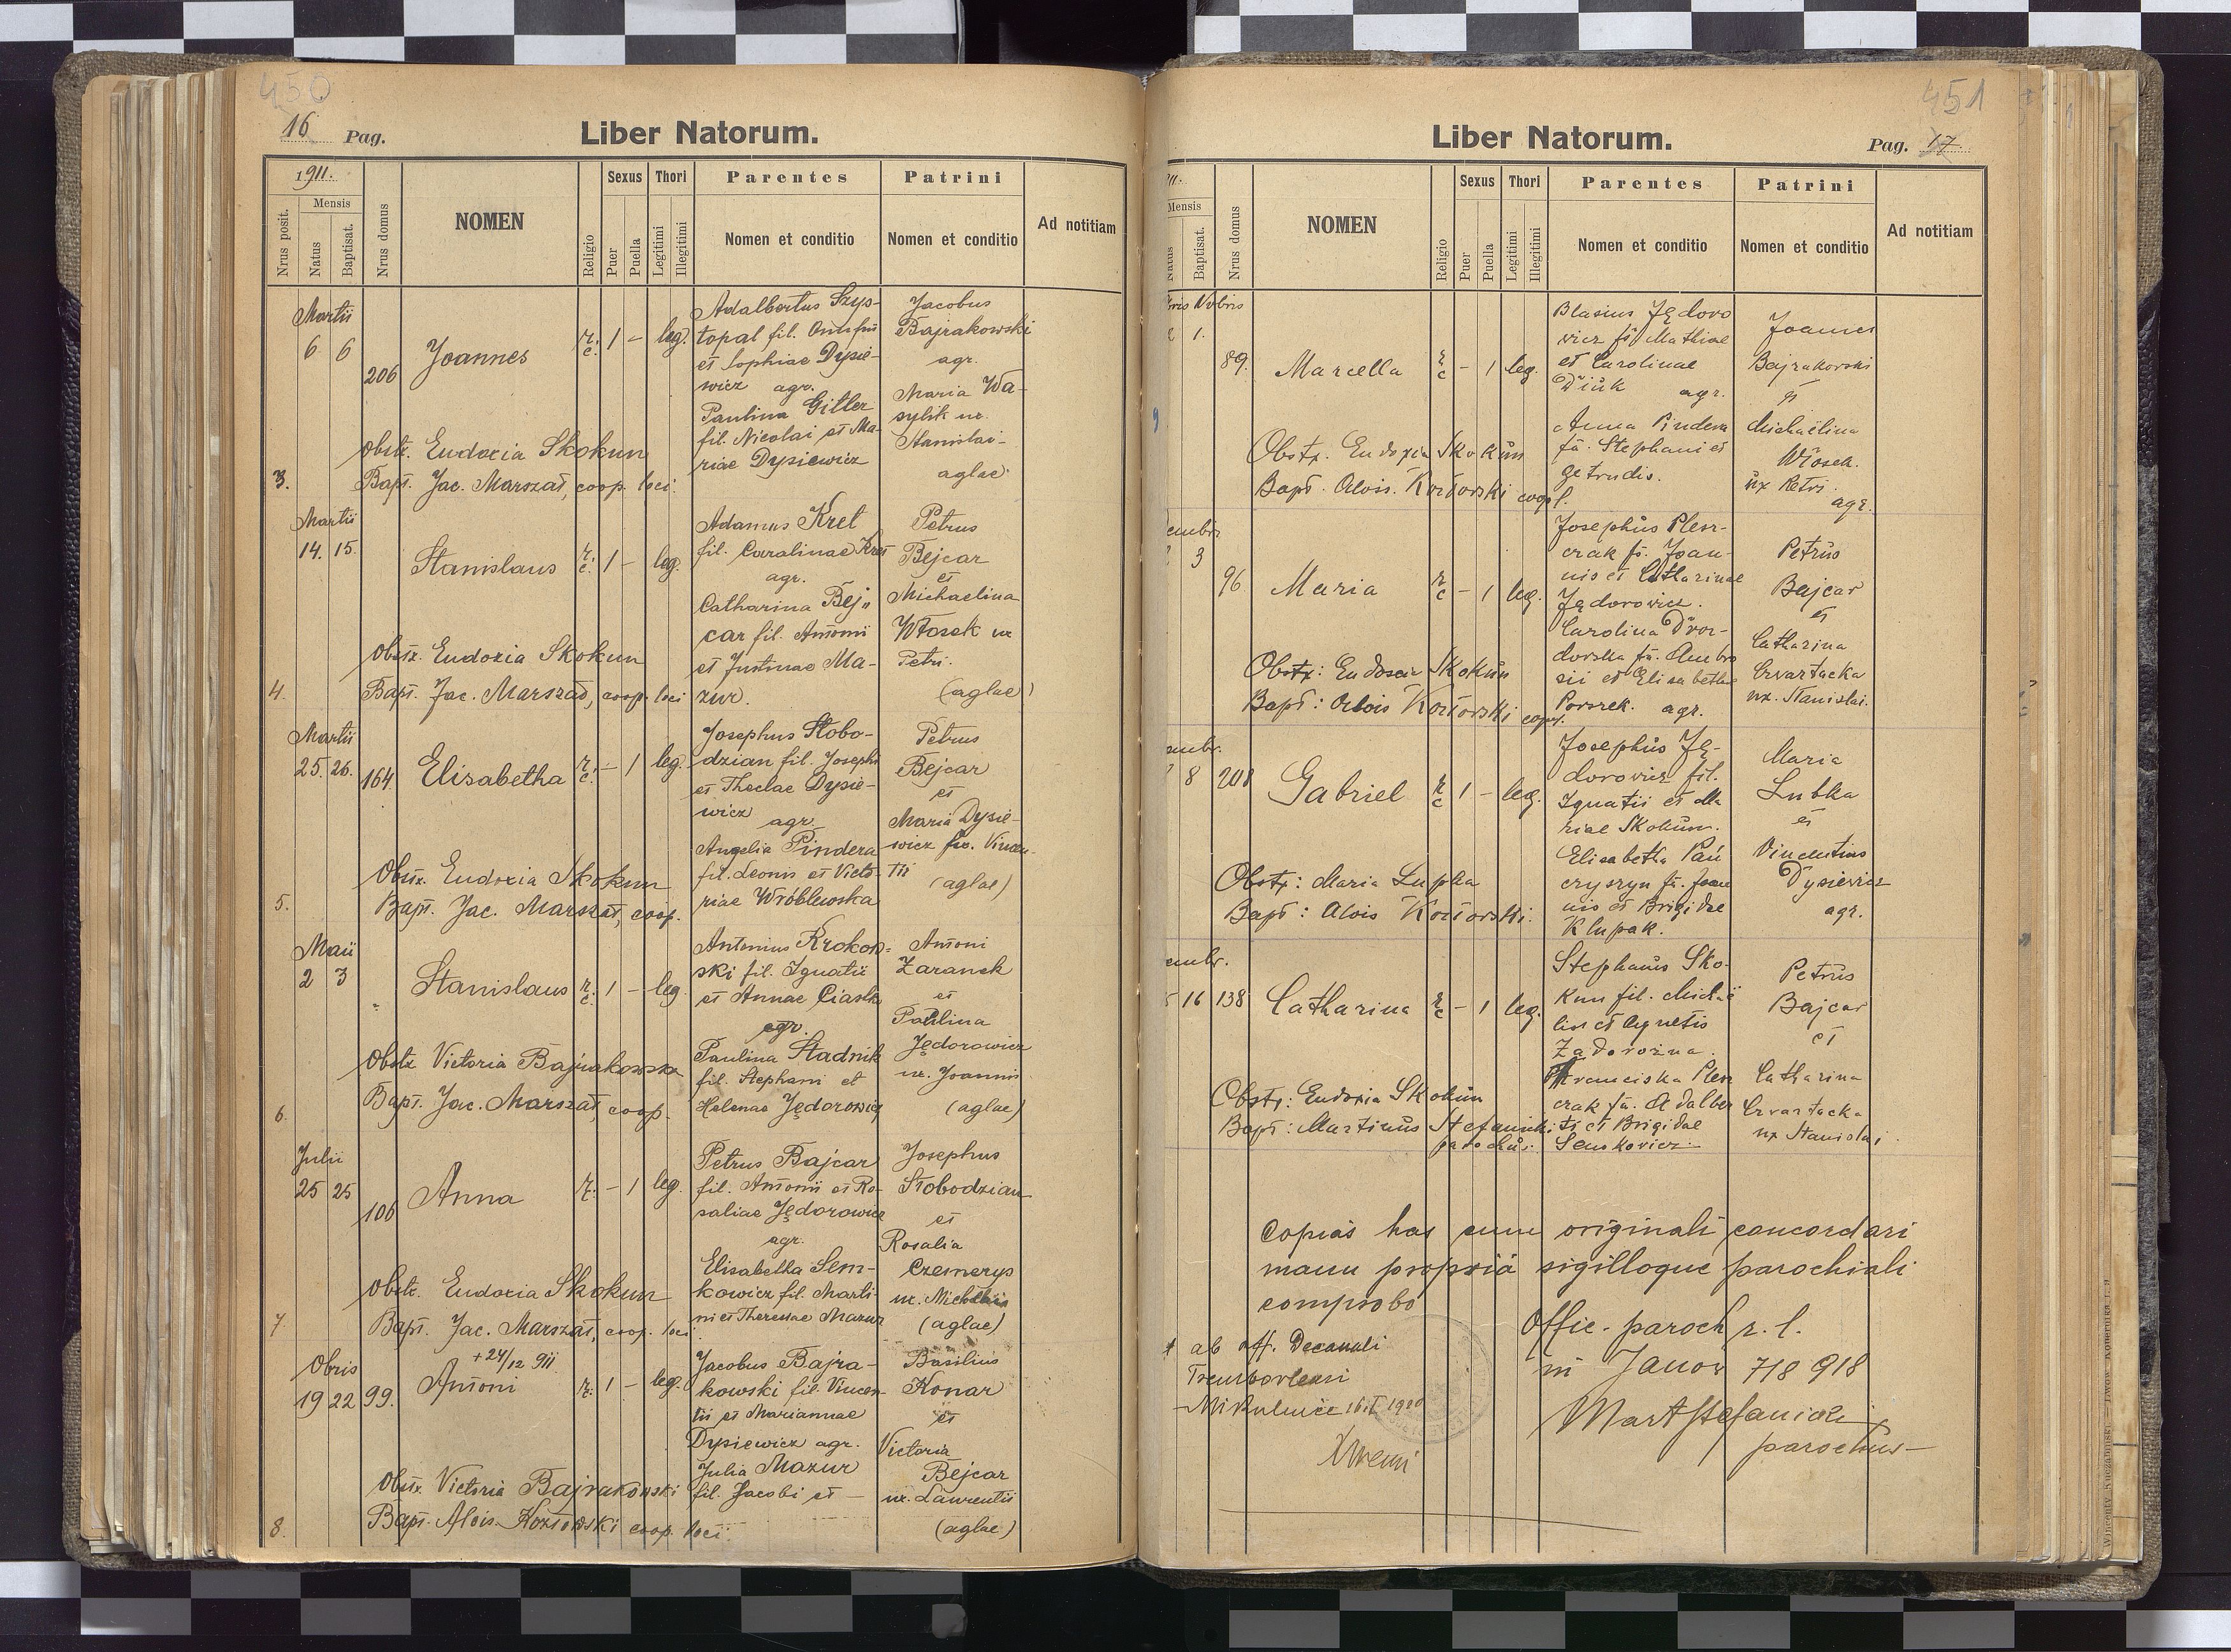 450
16 Pag.
Liber Natorum.
1911.
Nrus posit.
Mensis
Natus
Baptisat.
Nrus domus
NOMEN
Religio
Sexus
Puer
Puella
Thori
Legitimi
Illegitimi
Parentes
Nomen et conditio
Patrini
Nomen et conditio
Ad notitiam
Martii
6 6
206
Joannes
r. c. 1 - leg.
Adalbertus Szys-
topal fil.
et Sophiae Dysie-
wicz agr.
Paulina Gitler
fil. Nicolai et Ma-
riae Dysiewicz
Jacobus
Bajrakowski
agr.
Maria Wa-
sylik ux.
Stanislai-
aglae
Obstr. Eudoxia Skokun
3. Bapt. Jac. Marszał, coop. loci.
Martii
14. 15.
Stanislaus
r. c. 1 - leg.
Adamus Kret
fil. Carolinae Kret
agr.
Catharina Bej"
car fil. Antonii
et Justinae Ma-
zur.
Petrus
Bejcar
et
Michaelina
Włosek ux
Petri.
(aglae)
Obstr. Eudoxia Skokun
4. Bapt. Jac. Marszał, coop. loci
Martii
25. 26.
164
Elisabetha
r. c. - 1 leg.
Josephus Słobo-
dzian fil. Josephi
et Theclae Dysie-
wicz agr.
Angelia Pindera
fil. Leonis et Victo-
riae Wróblewska
Petrus
Bejcar
et
Maria Dysie-
wicz fil. Vincen-
tii (aglae)
Obstr. Eudoxia Skokun
5. Bapt. Jac. Marszał, coop.
Maii
2 3
Stanislaus
r. c. 1 - leg.
Antonius Krokow-
ski fil. Ignatii
et Annae Ciastk
agr.
Paulina Stadnik
fil. Stephani et
Helenae Jędorowicz
Antoni
Zaranek
et
Paulina
Jędorowicz
ux. Joannis
(aglae)
Obstr Victoria Bajrakowska
6. Bapt. Jac. Marszał, coop.
Julii
25 25
106
Anna
r. - 1 leg.
Petrus Bajcar
fil. Antonii et Ro-
saliae Jędorowicz
agr.
Elisabetha Sem-
kowicz fil. Marti-
ni et Theresae Mazur
Josephus
Słobodzian
et
Rosalia
Czemerys
ux. Michaelis
(aglae)
Obstr. Eudoxia Skokun
7 Bapt. Jac. Marszał, coop. loci
Obris
19 22 99.
+ 24/12 911
Antoni
r. 1 - leg.
Jacobus Bajra-
kowski fil. Vincen-
tii et Mariannae
Dysiewicz agr.
Julia Mazur
fil. Jacobi et -
Basilius
Konar
et
Victoria
Bejcar
ux. Laurentii
(aglae)
Obstr. Victoria Bajrakowski
8. Bapt. Alois Kozłowski coop. loci
451
Liber Natorum.
Pag. 17
Mensis
Natus
Baptisat.
Nrus domus
NOMEN
Religio
Sexus
Puer
Puella
Thori
Legitimi
Illegitimi
Parentes
Nomen et conditio
Patrini
Nomen et conditio
Ad notitiam
Vobris
1.
89.
Marcella
r c - 1 leg.
Blasius Jędoro
wicz fil Mathiae
et Carolinae
Diuk agr.
Anna Pindera
fil. Stephani et
Getrudis.
Joannes
Bajrakowski
et
Michaëlina
Włosek.
ux Petri.
agr.
Obstr. Eudoxia Skokun
Bapt. Alois. Kozłowski coopl.
3
96
Maria
r c - 1 leg.
Josephus Plesz-
czak fil. Joan-
nis et Catharinae
Jędorowicz.
Carolina Dwor-
dovska fil. Ambro
sii et Elisabethae
Porszek. agr.
Petrus
Bajcar
et
Catharina
Czwartacka
ux. Stanislai.
Obstr: Eudoxia Skokun
Bapt: Alois Kozłowski coopl.
8 208
Gabriel
r c 1 - leg.
Josephus Ję-
dorowicz fil.
Ignatii et Ma
riae Skokun.
Elisabetha Pań
cryszyn fil. Joan
nis et Brigidae
Klupak.
Maria
Lubka
et
Vincentius
Dysiewicz
agr.
Obstr: Maria Lupka
Bapt: Alois Kozłowski.
16 138
Catharina
r c - 1 leg.
Stephanus Sko-
kun fil. Michaë
lis et Agnetis
Zadorożna.
Franciska Plesz
czak fil. Adalber
ti et Brigidae
Senkowicz.
Petrus
Bajcar
et
Catharina
Czwartacka
ux Stanislai.
Obstr: Eudoxia Skokun
Bapt: Martinus Stefanicki
parochus.
Copias has cum originali concordari
manu propriâ sigilloque parochiali
comprobo
Offic. paroch r. l.
in Janow 7/8 918
Mart Stefanicki
parochus
ab off. Decanali
Trembovlensi
Mikulnice 16.I 1920